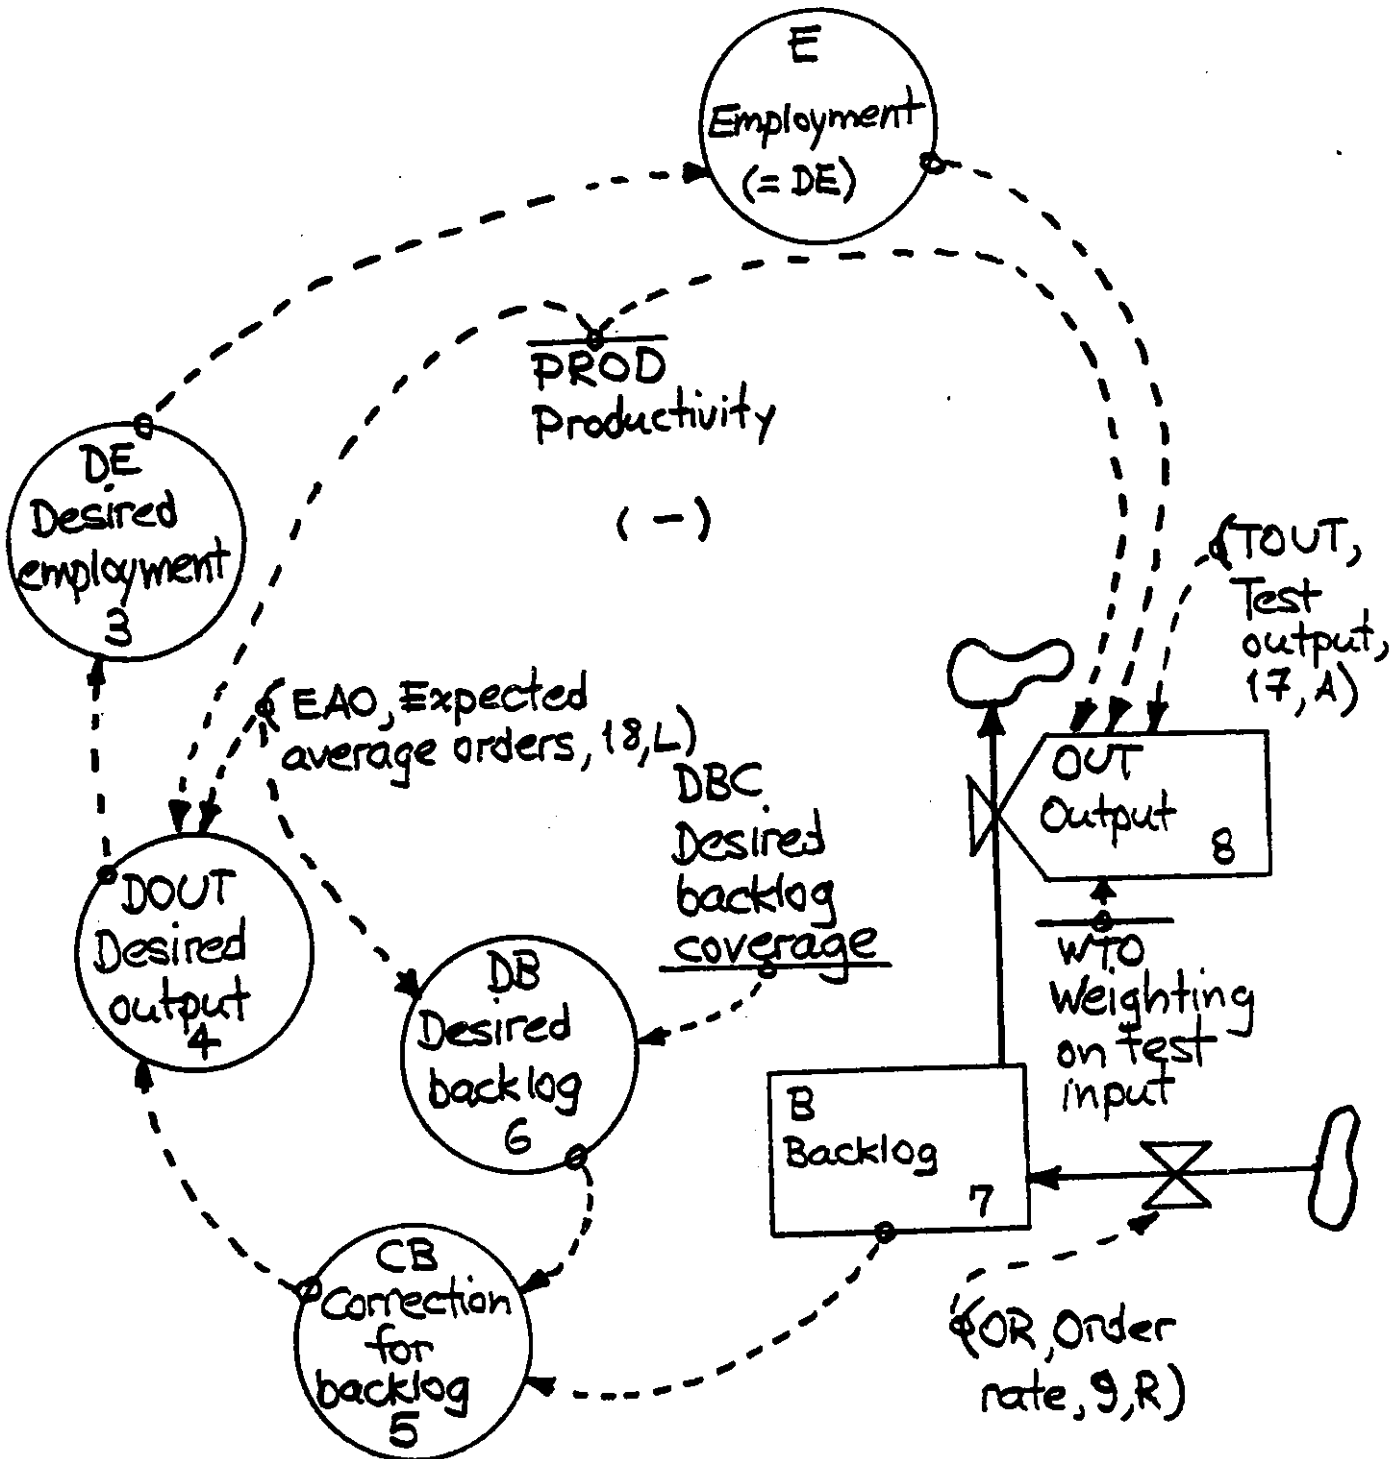 E
Employment
(= DE)
PROD
Productivity
(-)
DE
Desired
employment
3
(TOUT,
Test
output,
17, A)
(EAO, Expected
average orders, 18, L)
DBC
Desired
backlog
coverage
OUT
Output
8
DOUT
Desired
output
4
DB
Desired
backlog
6
WTO
Weighting
on test
input
B
Backlog
7
CB
Correction
for
backlog
5
(OR, Order
rate, 9, R)